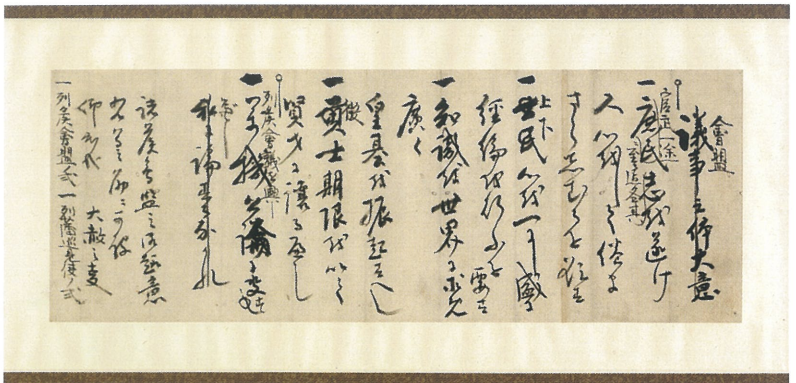 會盟
議事之体大意
一庶民志を遂け
官武一途
至迄各其
人心をして倦ま
さらしむるを欲す
一士民心を一にし盛に
上下
経綸を行ふを要す
一知識を世界に求め
廣く
皇基を振起すへし
一貢士期限を以て
徴
賢才に譲るへし
列侯會議ヲ興シ
一萬機公論に決し
私に論するなかれ
諸侯會盟之御趣意
右等之筋ニ可被
仰出哉　大赦之事
一列侯會盟ノ式　一列藩巡見使ノ式